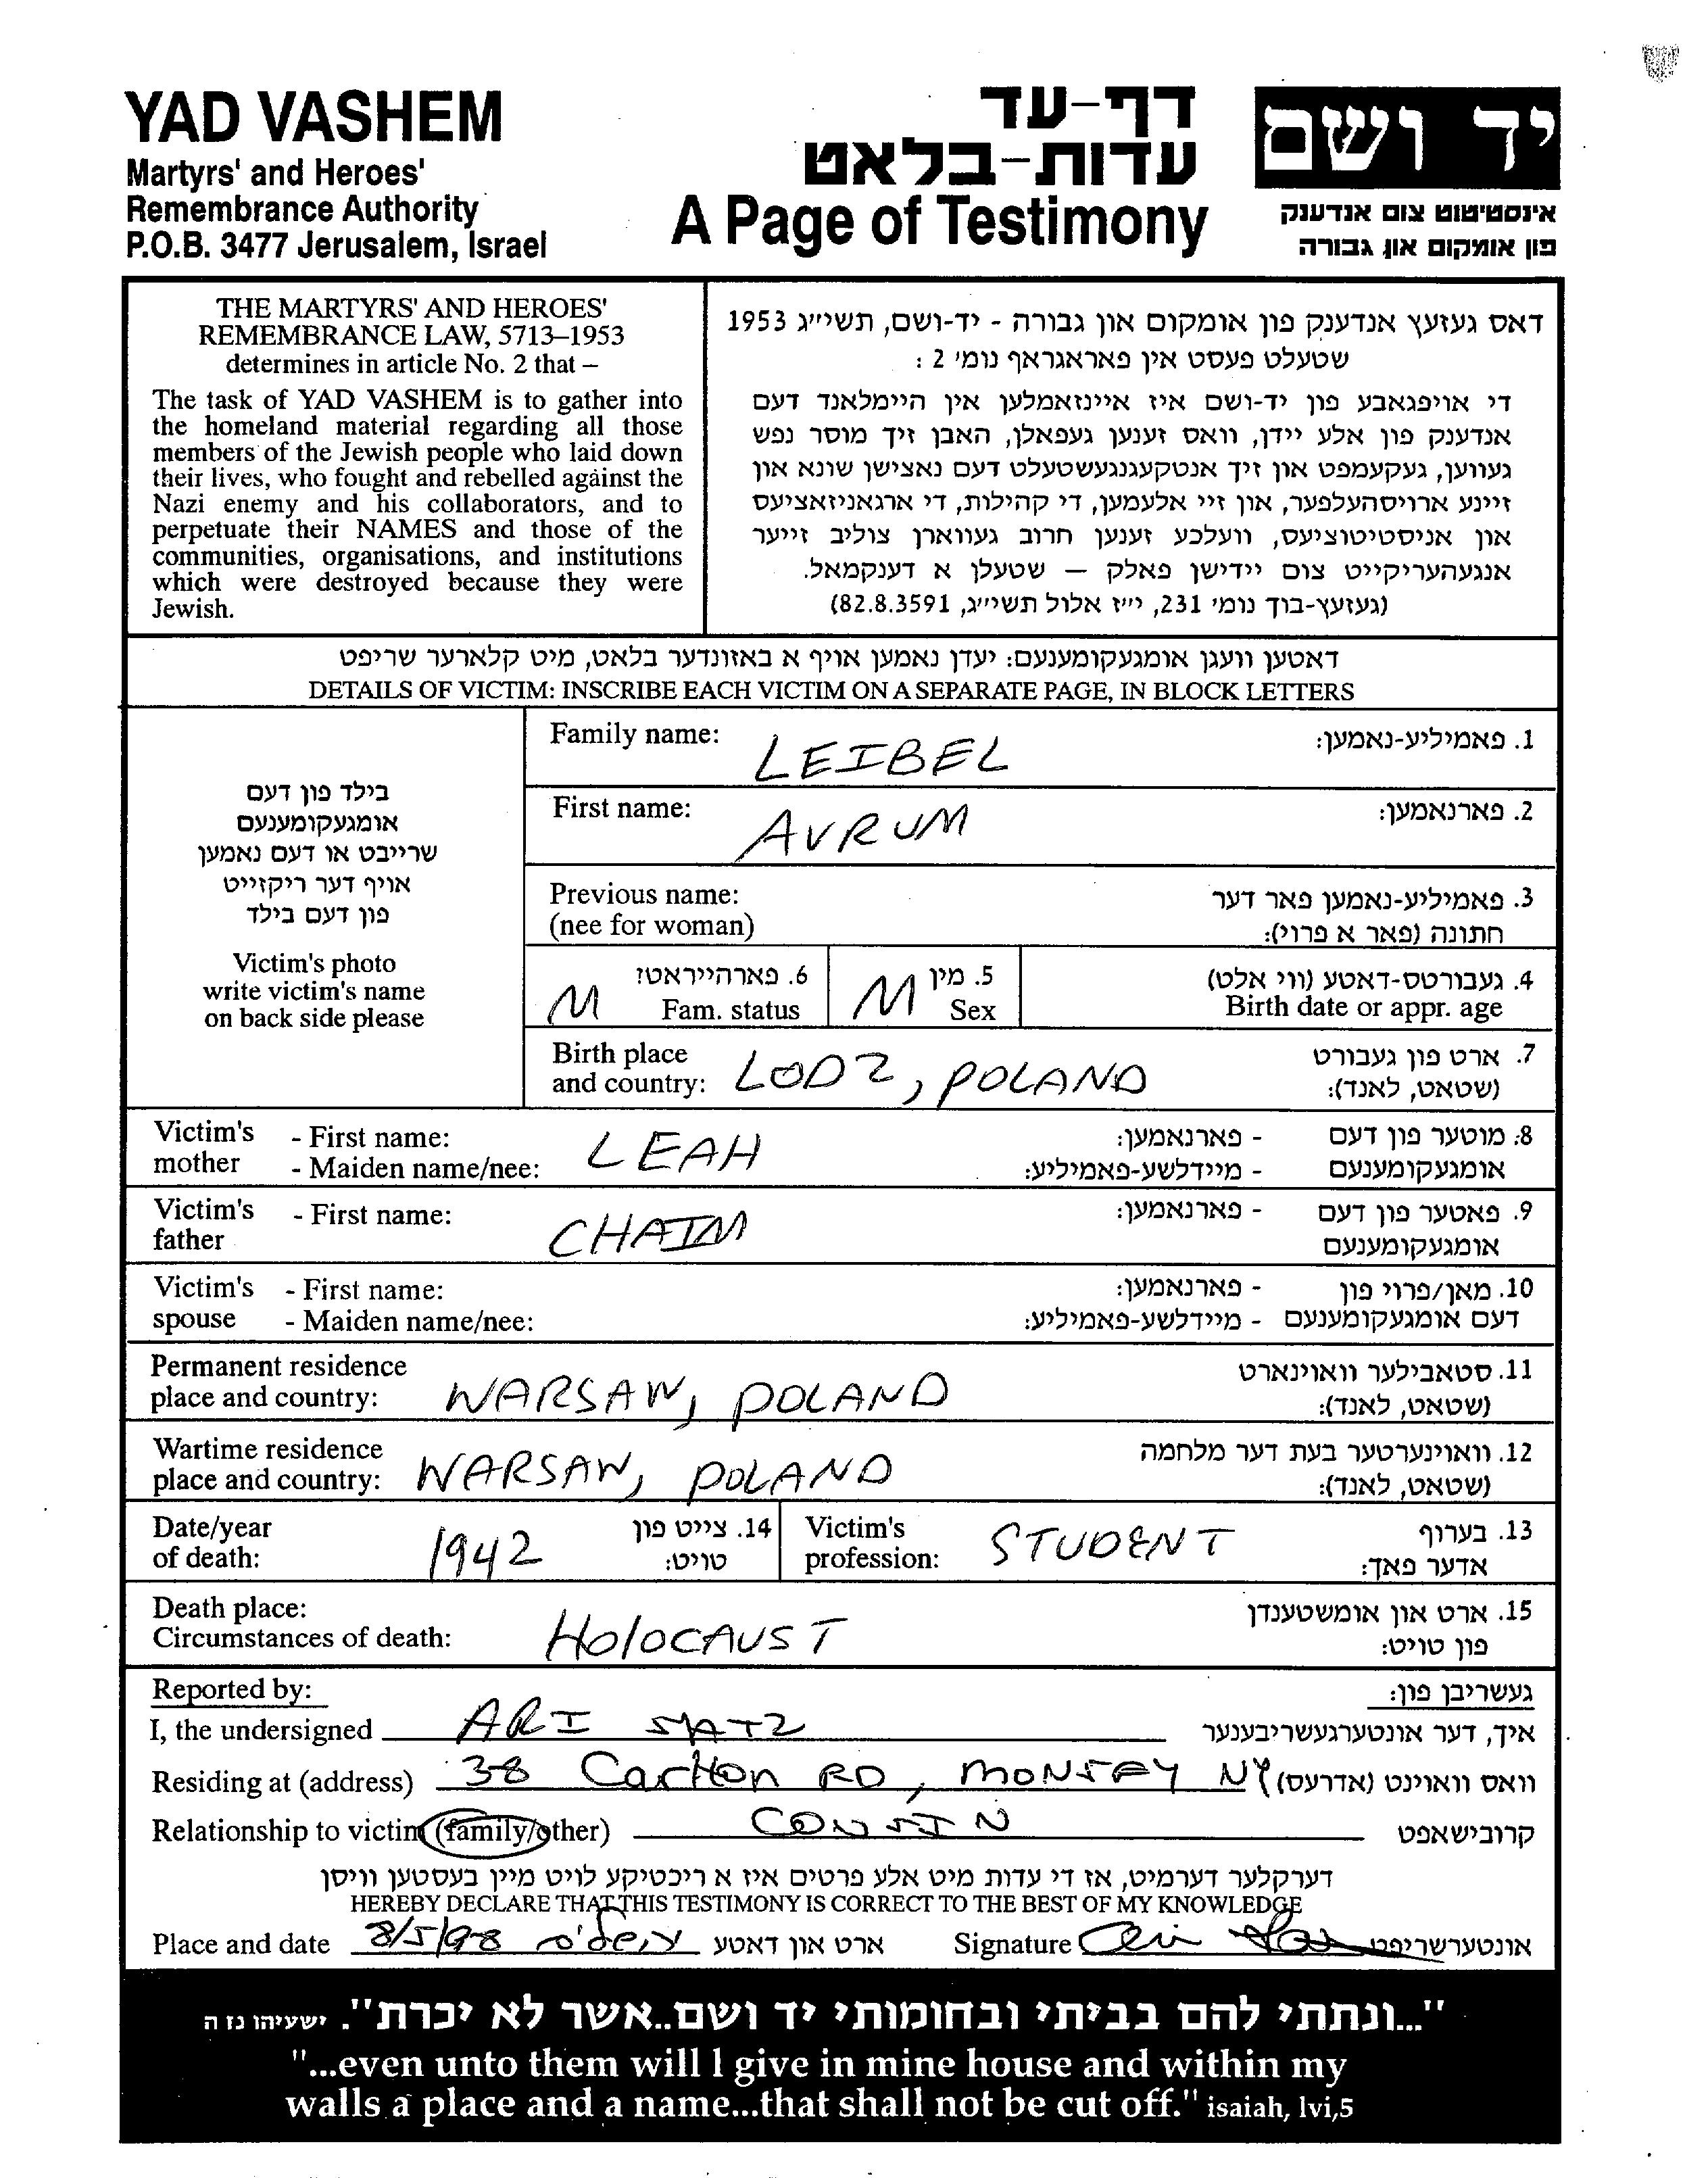 YAD VASHEM
Martyrs' and Heroes'
Remembrance Authority
P.O.B. 3477 Jerusalem, Israel
דף-עד
עדות-בלאט
A Page of Testimony
יד ושם
אינסטיטוט צום אנדענק
פון אומקום און גבורה
THE MARTYRS' AND HEROES'
REMEMBRANCE LAW, 5713–1953
determines in article No. 2 that –
The task of YAD VASHEM is to gather into
the homeland material regarding all those
members of the Jewish people who laid down
their lives, who fought and rebelled against the
Nazi enemy and his collaborators, and to
perpetuate their NAMES and those of the
communities, organisations, and institutions
which were destroyed because they were
Jewish.
דאס געזעץ אנדענק פון אומקום און גבורה - יד-ושם, תשי״ג 1953
שטעלט פעסט אין פאראגראף נומ' 2 :
די אויפגאבע פון יד-ושם איז איינזאמלען אין היימלאנד דעם
אנדענק פון אלע יידן, וואס זענען געפאלן, האבן זיך מוסר נפש
געווען, געקעמפט און זיך אנטקעגנגעשטעלט דעם נאצישן שונא און
זיינע ארויסהעלפער, און זיי אלעמען, די קהילות, די ארגאניזאציעס
און אניסטיטוציעס, וועלכע זענען חרוב געווארן צוליב זייער
אנגעהעריקייט צום יידישן פאלק — שטעלן א דענקמאל.
(געזעץ-בוך נומ' 231, י״ז אלול תשי״ג, 82.8.3591)
דאטען וועגן אומגעקומענעם: יעדן נאמען אויף א באזונדער בלאט, מיט קלארער שריפט
DETAILS OF VICTIM: INSCRIBE EACH VICTIM ON A SEPARATE PAGE, IN BLOCK LETTERS
בילד פון דעם
אומגעקומענעם
שרייבט או דעם נאמען
אויף דער ריקזייט
פון דעם בילד
Victim's photo
write victim's name
on back side please
Family name: LEIBEL 1. פאמיליע-נאמען:
First name: AVRUM 2. פארנאמען:
Previous name: 3. פאמיליע-נאמען פאר דער
(nee for woman) חתונה (פאר א פרוי):
M 6. פארהייראט? M 5. מין 4. געבורטס-דאטע (ווי אלט)
Fam. status Sex Birth date or appr. age
Birth place 7. ארט פון געבורט
and country: LODZ, POLAND (שטאט, לאנד):
Victim's - First name: LEAH - פארנאמען: 8. מוטער פון דעם
mother - Maiden name/nee: - מיידלשע-פאמיליע: אומגעקומענעם
Victim's - First name: CHAIM - פארנאמען: 9. פאטער פון דעם
father אומגעקומענעם
Victim's - First name: - פארנאמען: 10. מאן/פרוי פון
spouse - Maiden name/nee: - מיידלשע-פאמיליע: דעם אומגעקומענעם
Permanent residence 11. סטאבילער וואוינארט
place and country: WARSAW, POLAND (שטאט, לאנד):
Wartime residence 12. וואוינערטער בעת דער מלחמה
place and country: WARSAW, POLAND (שטאט, לאנד):
Date/year 14. צייט פון Victim's 13. בערוף
of death: 1942 טויט: profession: STUDENT אדער פאך:
Death place: 15. ארט און אומשטענדן
Circumstances of death: HOLOCAUST פון טויט:
Reported by: געשריבן פון:
I, the undersigned ARI SATZ איך, דער אונטערגעשריבענער
Residing at (address) 38 Carlton RD, MONSEY NY וואס וואוינט (אדרעס)
Relationship to victim (family/other) COUSIN קרובישאפט
דערקלער דערמיט, אז די עדות מיט אלע פרטים איז א ריכטיקע לויט מיין בעסטען וויסן
HEREBY DECLARE THAT THIS TESTIMONY IS CORRECT TO THE BEST OF MY KNOWLEDGE
Place and date 8/5/98 ארט און דאטע Signature אונטערשריפט
"...ונתתי להם בביתי ובחומותי יד ושם..אשר לא יכרת". ישעיהו נז ה
"...even unto them will I give in mine house and within my
walls a place and a name...that shall not be cut off." isaiah, lvi,5